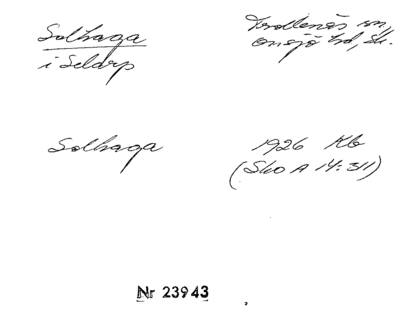 Solhaga
i Seldrp
Trollenäs sn,
Onsjö hd, Sk.
Solhaga
1926 Kb
(Sko A 14:311)
Nr 23943